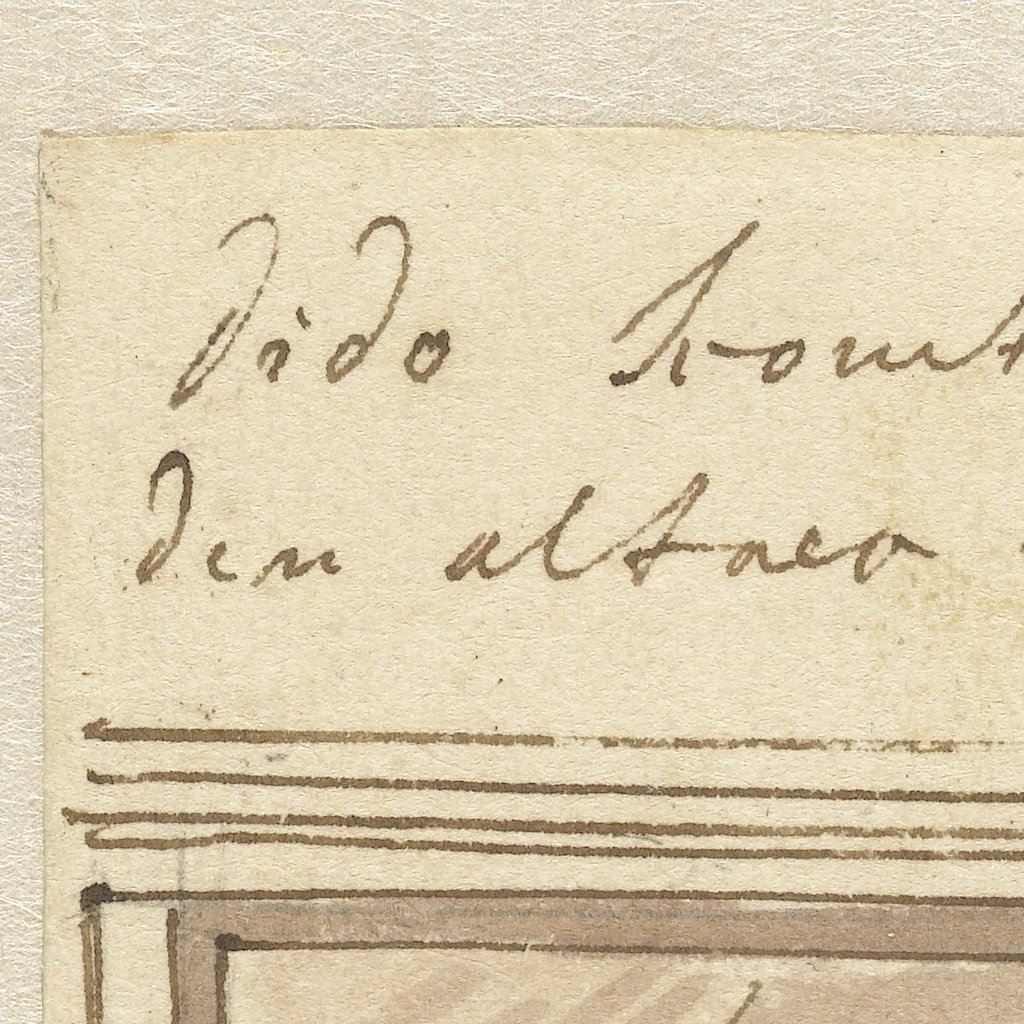 dido komt
den altaer